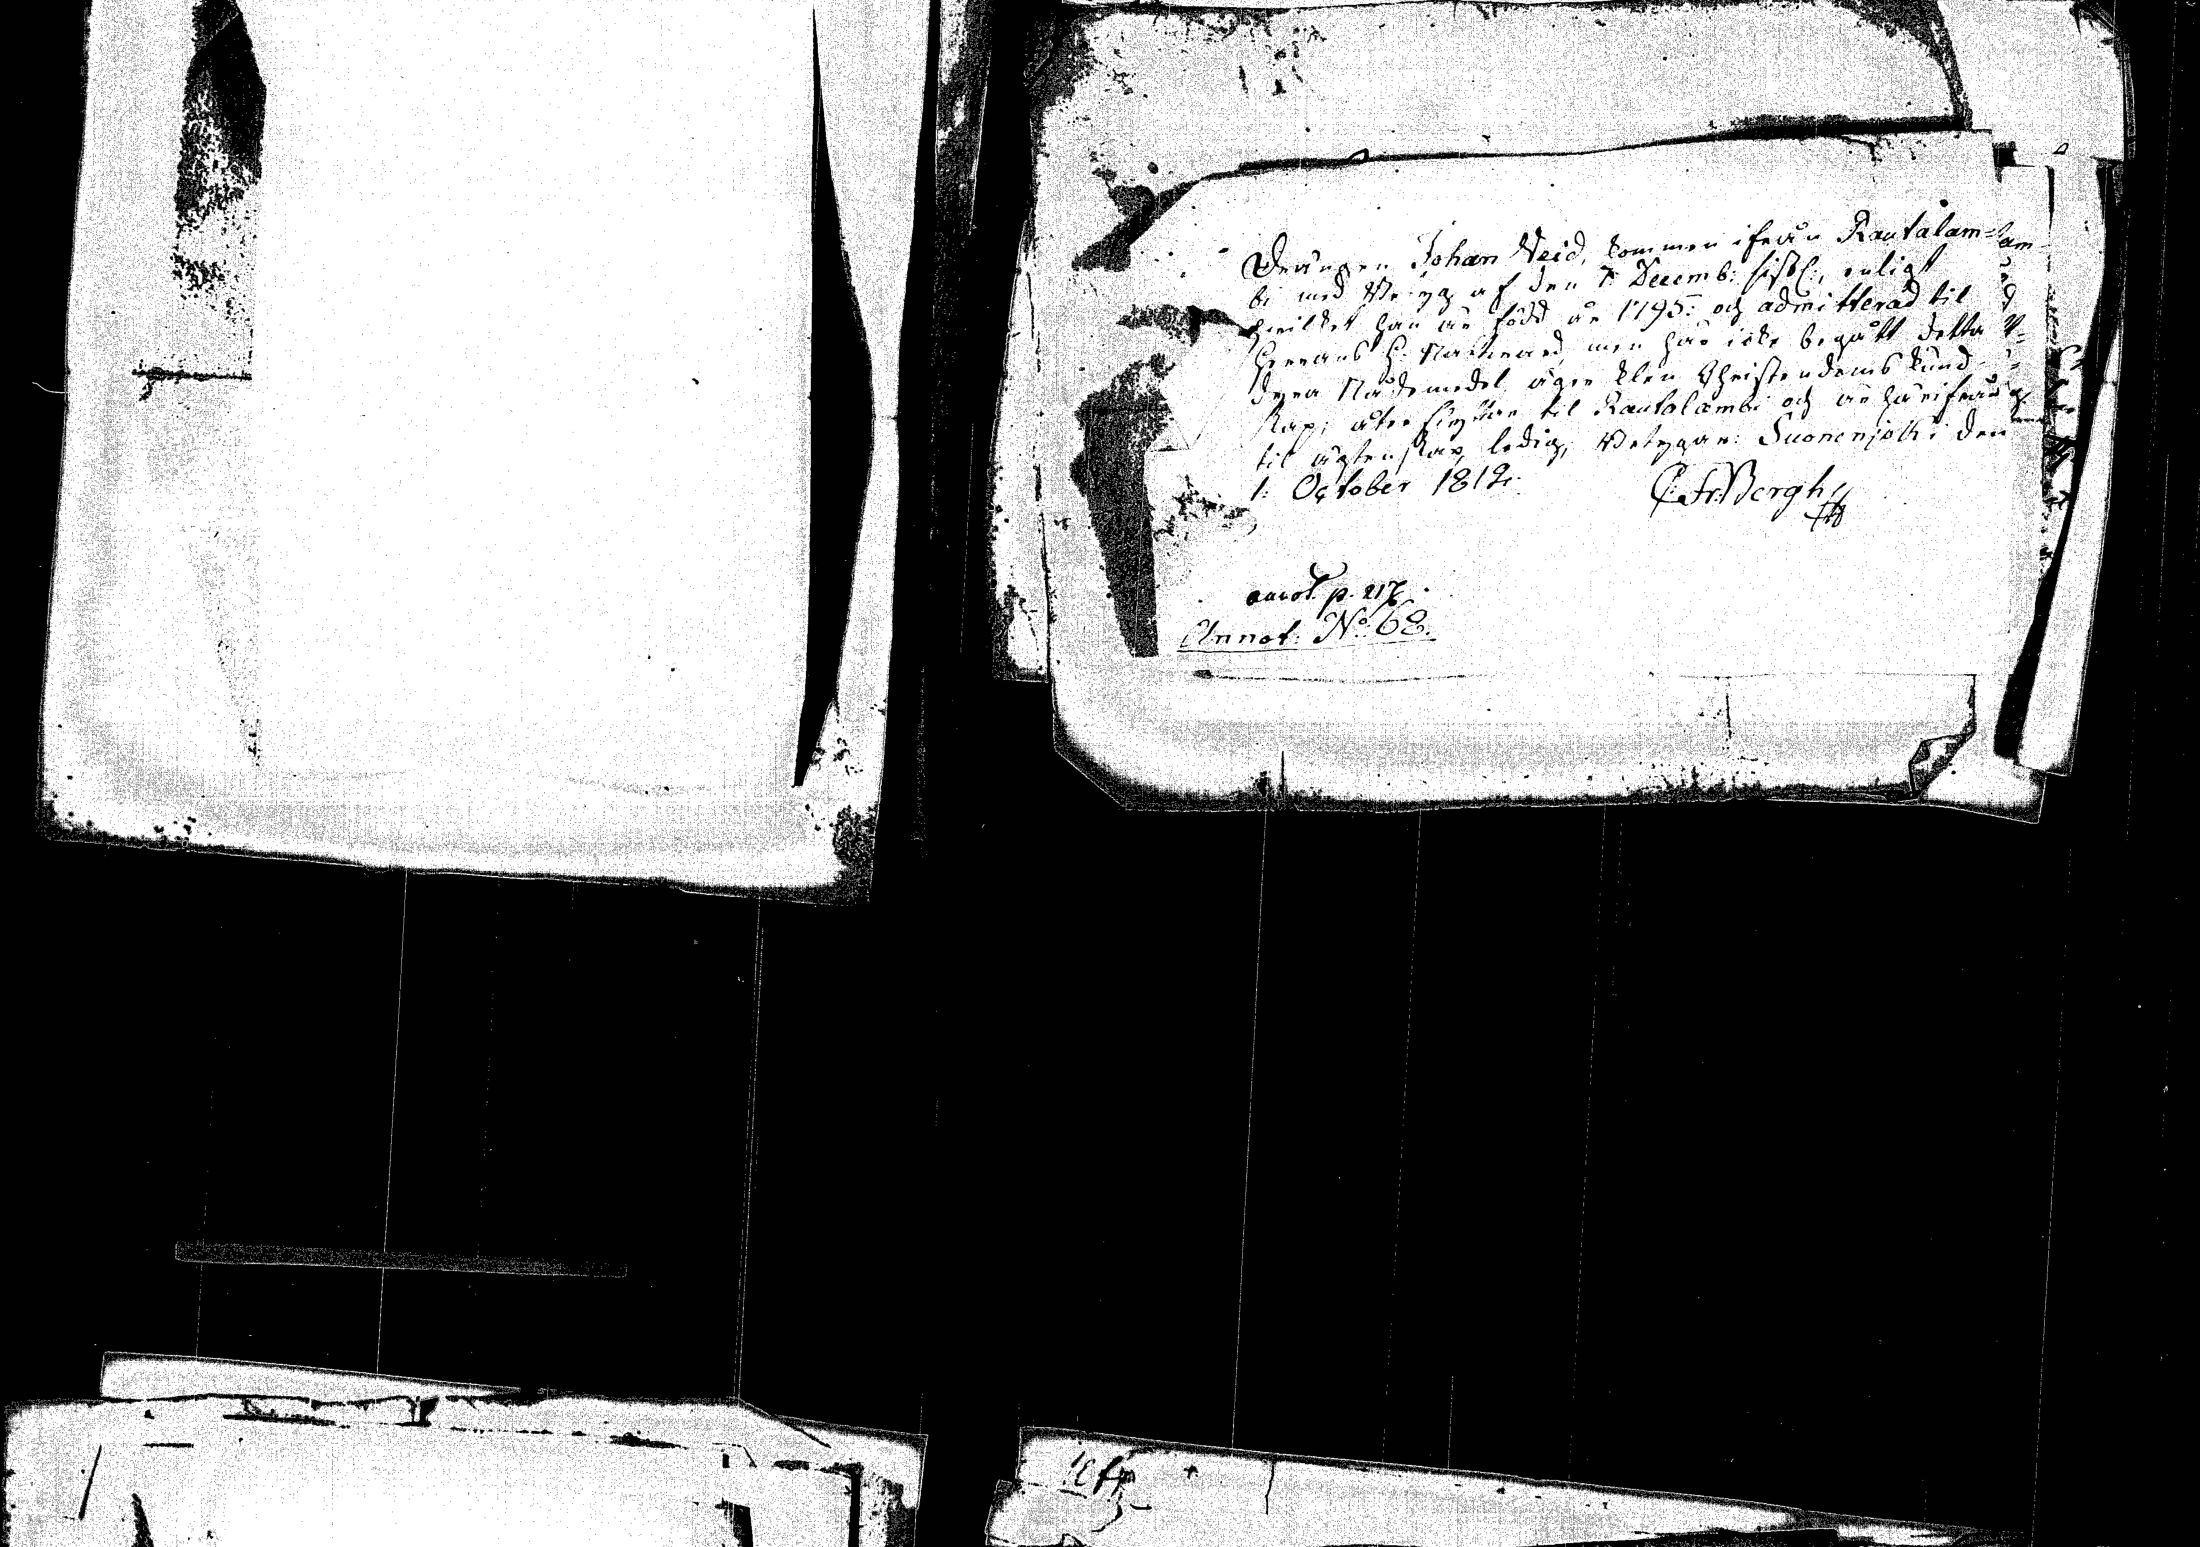 Drängen Johan Neid, kommen ifrån Rautalam-
bi med Betyg af den 7 Decemb: sistl:, enligt
hvilket han är född år 1795: och admitterad til
Herrans H. Nattvard, men har icke begått detta
dyra Nådemedel, äger klen Christendoms kund-
skap; åter flyttar til Rautalambi och är härifrån
til ägtenskap ledig; Betygar: Suonenjoki den
1: October 1812.
C. Fr. Bergh
annot. p. 217.
Annot: No: 68.